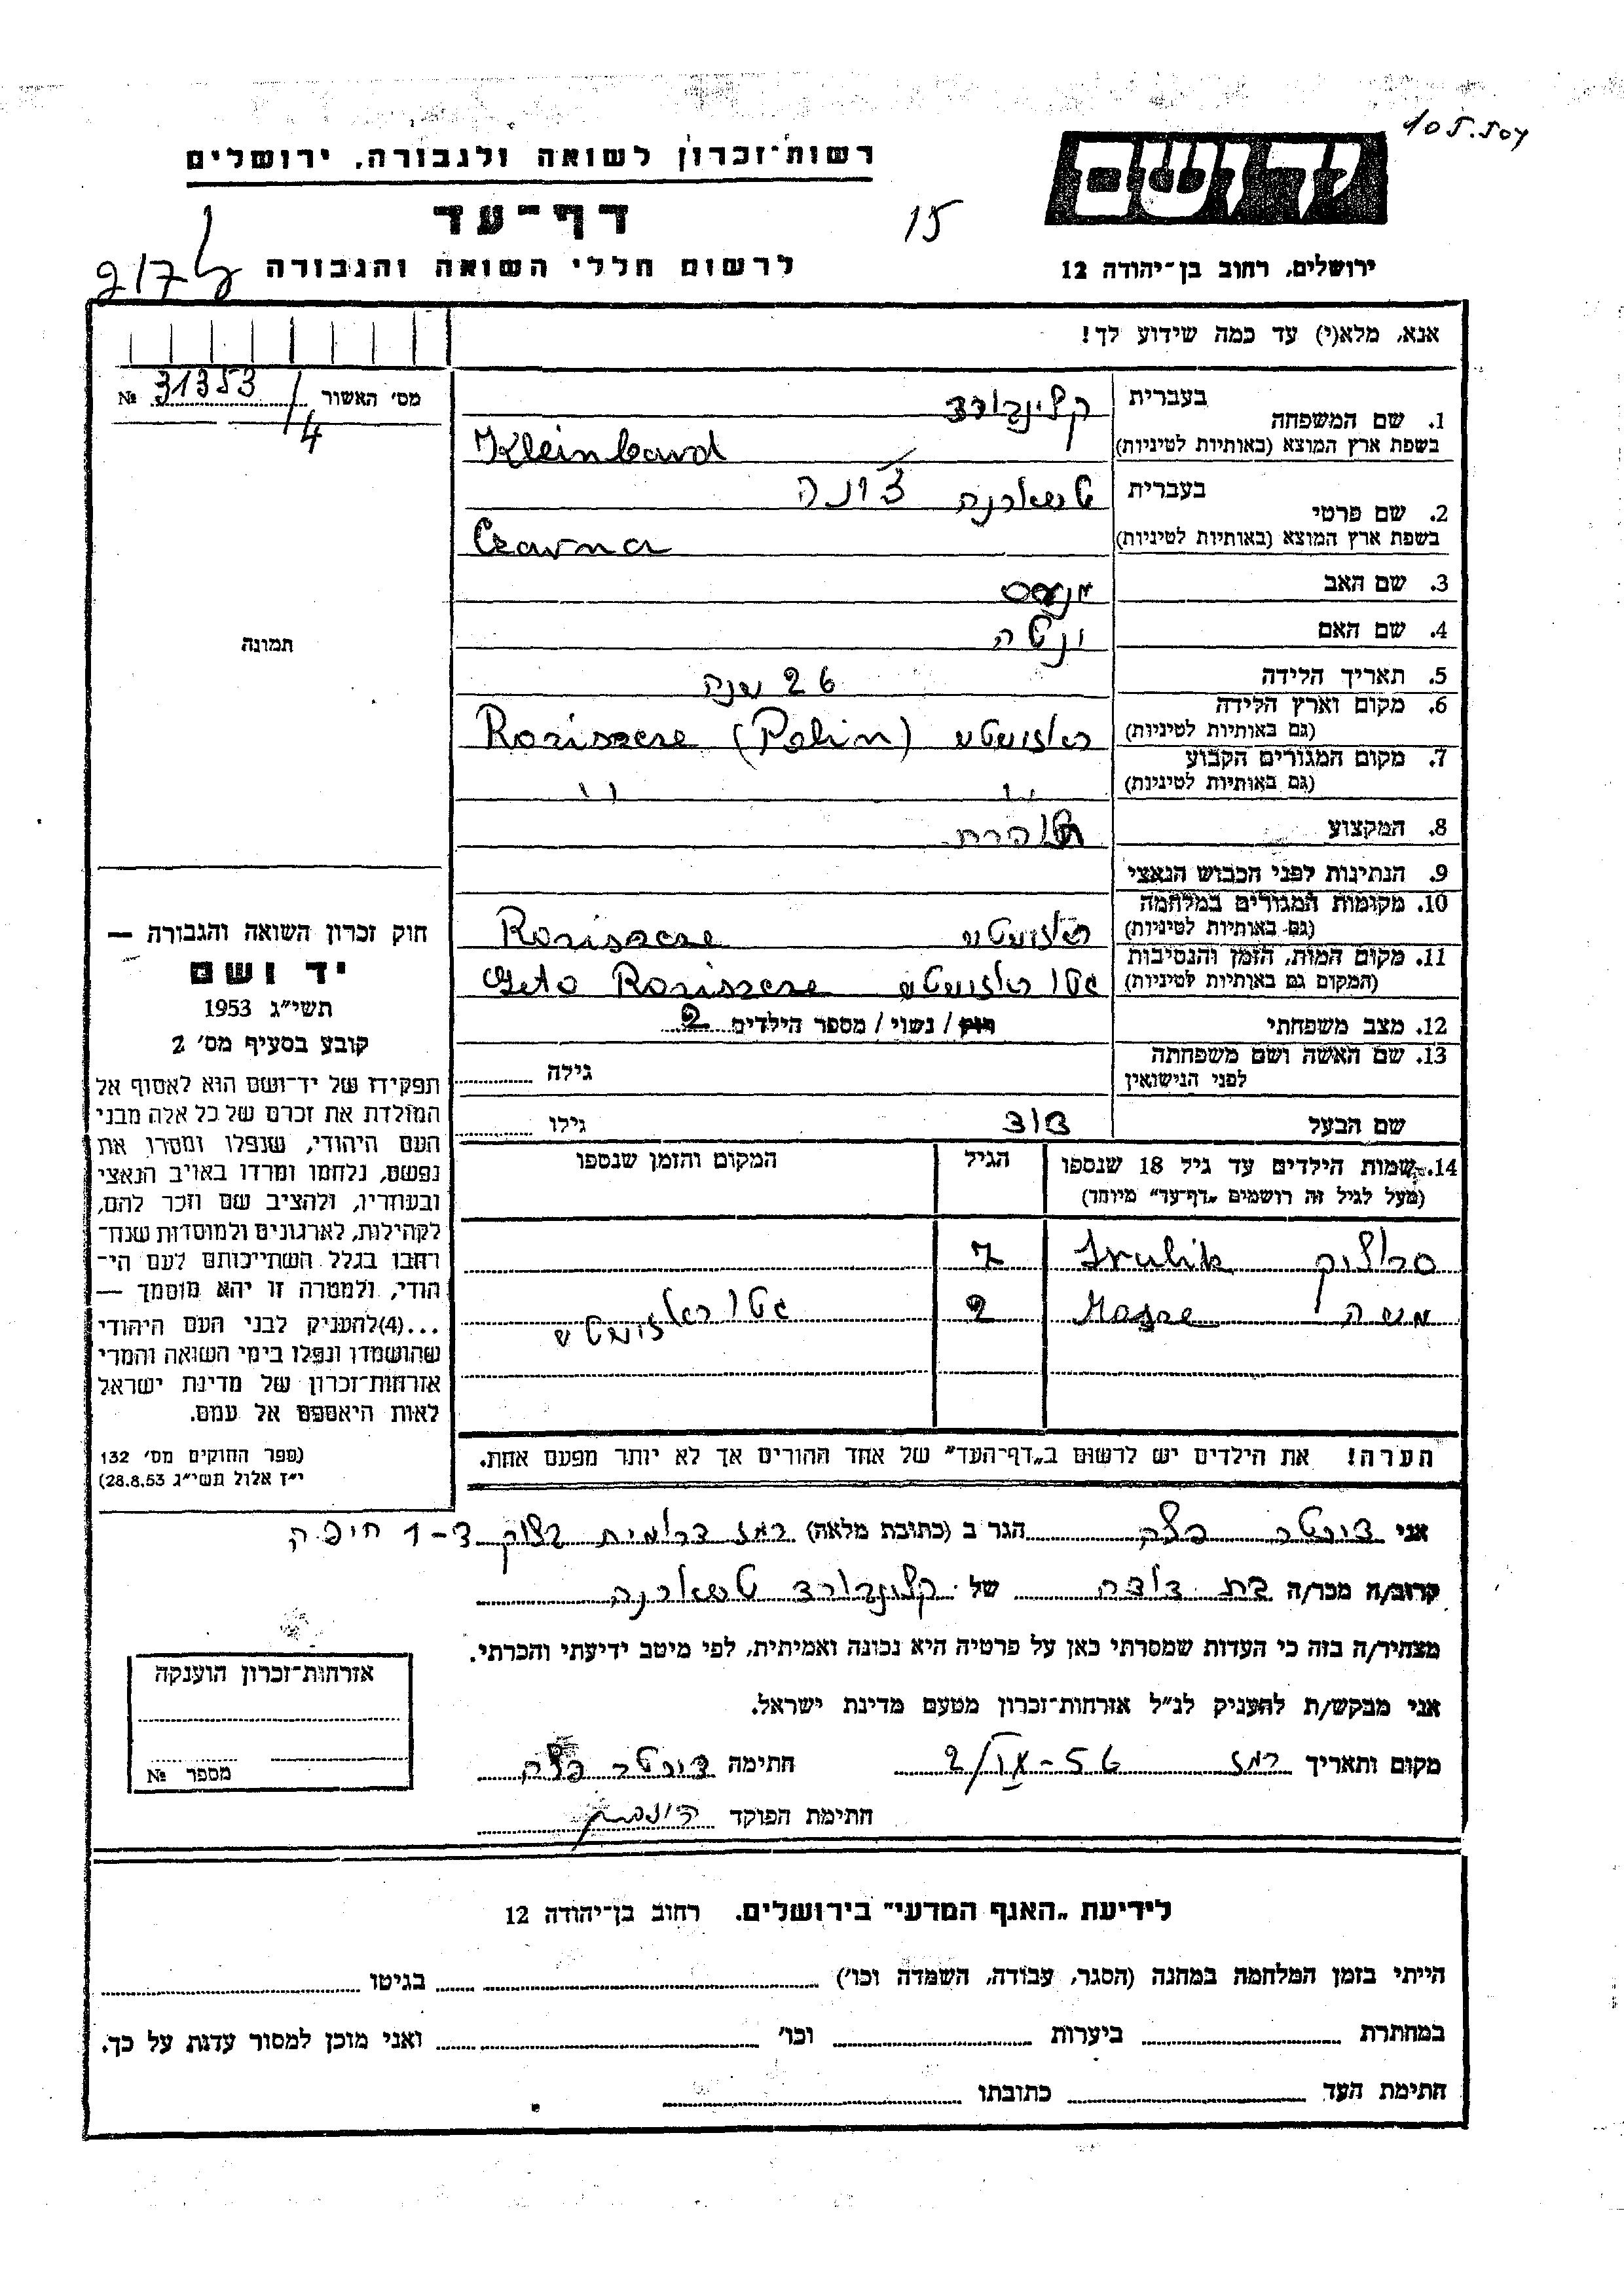 105.504
רשות־זכרון לשואה ולגבורה, ירושלים
ידושם
דף־עד
15
לרשום חללי השואה והגבורה
ירושלים, רחוב בן־יהודה 12
217
אנא, מלא(י) עד כמה שידוע לך!
מס׳ האשור 31353 №
4
1. שם המשפחה
בעברית קלינבורד
בשפת ארץ המוצא (באותיות לטיניות) Kleinbard
2. שם פרטי
בעברית טשארנה
בשפת ארץ המוצא (באותיות לטיניות) Czarna
3. שם האב
4. שם האם
תמונה
5. תאריך הלידה 26 שנה
6. מקום וארץ הלידה
(גם באותיות לטיניות) Roziszcze (Polin)
7. מקום המגורים הקבוע
(גם באותיות לטיניות) " "
8. המקצוע
9. הנתינות לפני הכבוש הנאצי
10. מקומות המגורים במלחמה
(גם באותיות לטיניות) Roziszcze
11. מקום המות, הזמן והנסיבות
(המקום גם באותיות לטיניות) Geto Roziszcze
12. מצב משפחתי רוק / נשוי / מספר הילדים 2
13. שם האשה ושם משפחתה
לפני הנישואין
גילה
שם הבעל דוד גילו
14. שמות הילדים עד גיל 18 שנספו
(מעל לגיל זה רושמים „דף־עד״ מיוחד)
הגיל
המקום והזמן שנספו
סרוליק Srulik 7
משה Mosze 2
הערה! את הילדים יש לרשום ב„דף־העד״ של אחד ההורים אך לא יותר מפעם אחת.
חוק זכרון השואה והגבורה —
יד ושם
תשי״ג 1953
קובע בסעיף מס׳ 2
תפקידו של יד־ושם הוא לאסוף אל
המולדת את זכרם של כל אלה מבני
העם היהודי, שנפלו ומסרו את
נפשם, נלחמו ומרדו באויב הנאצי
ובעוזריו, ולהציב שם וזכר להם,
לקהילות, לארגונים ולמוסדות שנח־
רבו בגלל השתייכותם לעם הי־
הודי, ולמטרה זו יהא מוסמך —
...(4)להעניק לבני העם היהודי
שהושמדו ונפלו בימי השואה והמרי
אזרחות־זכרון של מדינת ישראל
לאות היאספם אל עמם.
(ספר החוקים מס׳ 132
י״ז אלול תשי״ג 28.8.53)
אני הגר ב (כתובת מלאה) חיפה
קרוב/ה מכר/ה בת דודה של קלינבורד טשארנה
מצהיר/ה בזה כי העדות שמסרתי כאן על פרטיה היא נכונה ואמיתית, לפי מיטב ידיעתי והכרתי.
אני מבקש/ת להעניק לנ״ל אזרחות־זכרון מטעם מדינת ישראל.
מקום ותאריך חתימה
חתימת הפוקד
אזרחות־זכרון הוענקה
מספר №
לידיעת „האגף המדעי״ בירושלים. רחוב בן־יהודה 12
הייתי בזמן המלחמה במחנה (הסגר, עבודה, השמדה וכו׳) בגיטו
במחתרת ביערות וכו׳ ואני מוכן למסור עדות על כך.
חתימת העד כתובתו